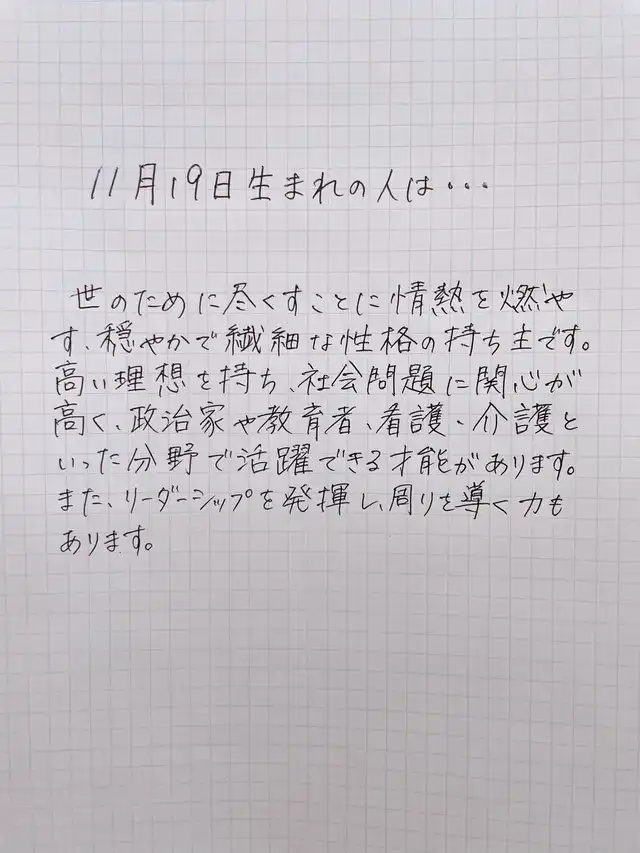 11月19日生まれの人は・・・
世のために尽くすことに情熱を燃や
す、穏やかで繊細な性格の持ち主です。
高い理想を持ち、社会問題に関心が
高く、政治家や教育者、看護・介護と
いった分野で活躍できる才能があります。
また、リーダーシップを発揮し、周りを導く力も
あります。